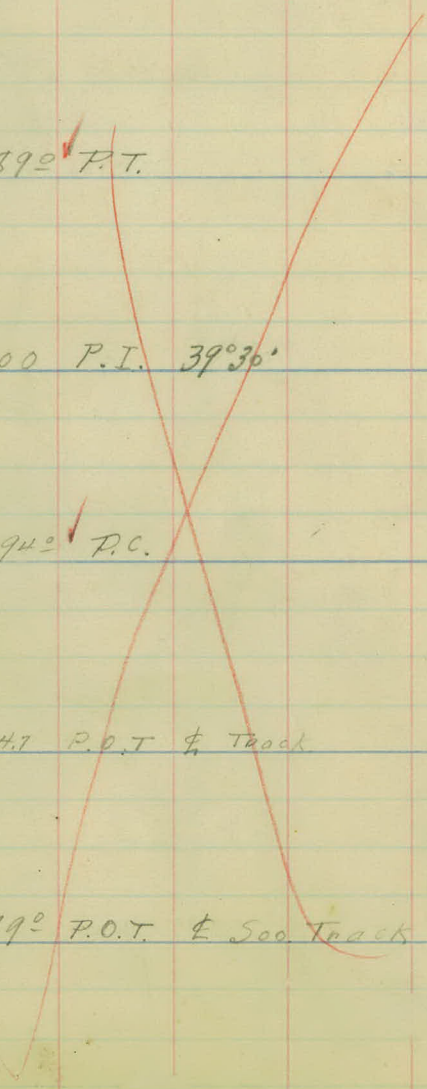 39º P.T.
00 P.I. 39°30'
94º P.C.
4.7 P.O.T ℄ Track
9º P.O.T. ℄ Soo. Track